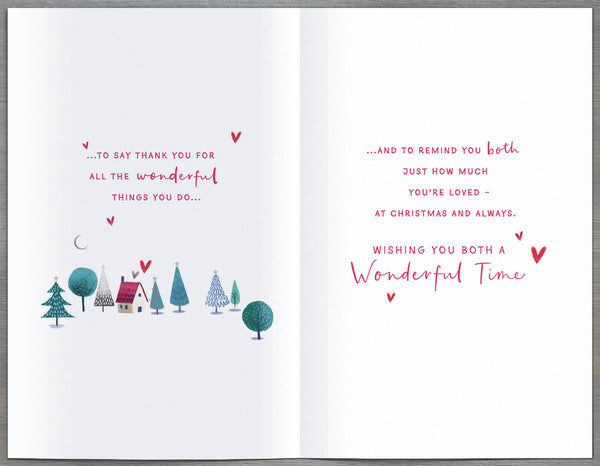 ...TO SAY THANK YOU FOR
ALL THE wonderful
THINGS YOU DO...
...AND TO REMIND YOU both
JUST HOW MUCH
YOU'RE LOVED –
AT CHRISTMAS AND ALWAYS.
WISHING YOU BOTH A
Wonderful Time